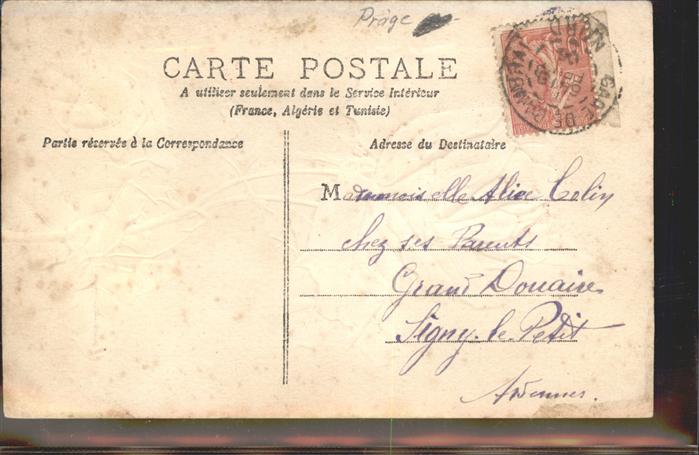 Präge
CARTE POSTALE
A utiliser seulement dans le Service Intérieur
(France, Algérie et Tunisie)
Partie réservée à la Correspondance
Adresse du Destinataire
Mademoiselle Alice Colin
chez ses Parents
Grand Douaire
Signy-le-Petit
Ardennes.